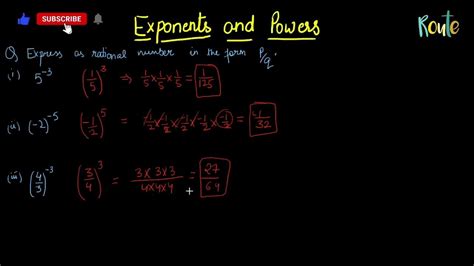 SUBSCRIBE
Exponents and Powers
Route
Q Express as rational number in the form P/q.
(i) 5⁻³ (1/5)³ ⇒ 1/5 × 1/5 × 1/5 = 1/125
(ii) (-2)⁻⁵ (-1/2)⁵ = -1/2 × -1/2 × -1/2 × -1/2 × -1/2 = -1/32
(iii) (4/3)⁻³ (3/4)³ = 3×3×3/4×4×4 = 27/64